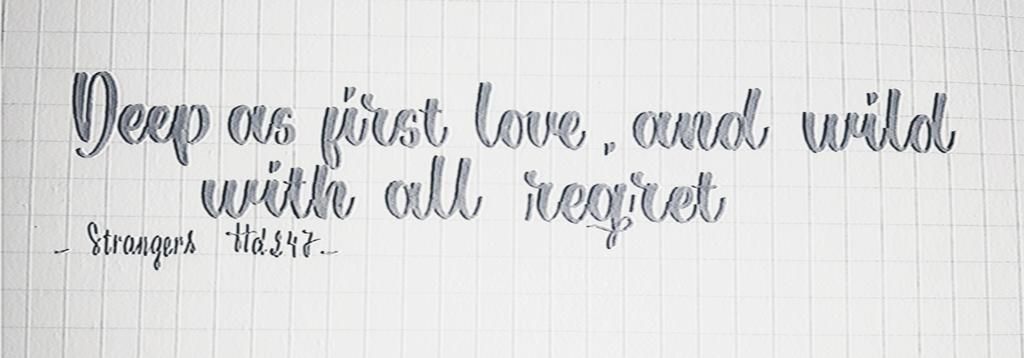 Deep as first love, and wild
with all regret
- Strangers ttd.247-